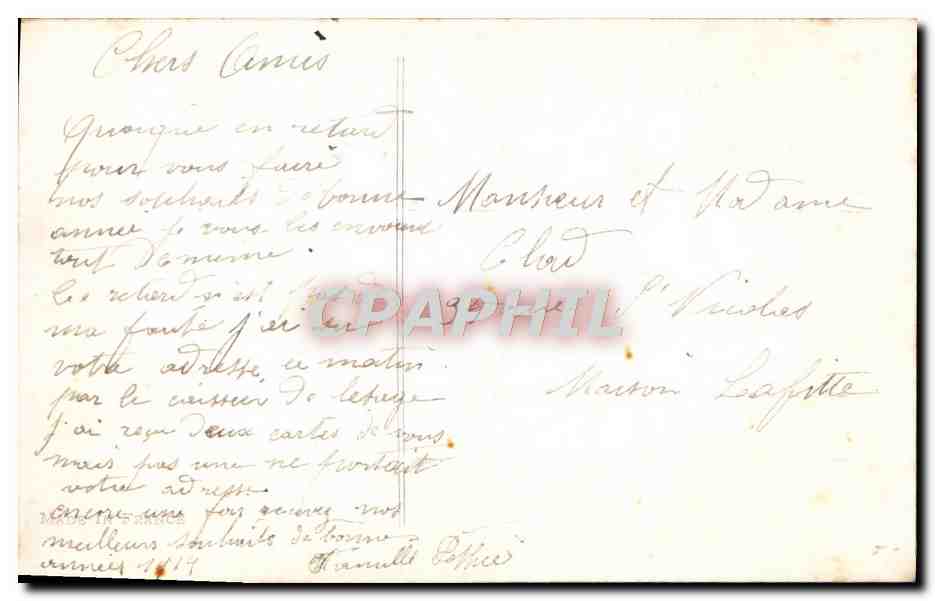 Chers Amis
Quoique en retard
pour vous faire
nos souhaits de bonne
année je vous les envoient
tout de meme.
Ce retard n'est pas
ma faute j'ai eu
votre adresse ce matin.
par le caissier de
j'ai reçu deux cartes de vous
mais pas une ne portait
votre adresse
encore une fois recevez nos
meilleurs souhaits de bonne
année 1914
Famille
Monsieur et Madame
Clad
rue St Nicolas
Maison Lafitte
MADE IN FRANCE
CPAPHIL